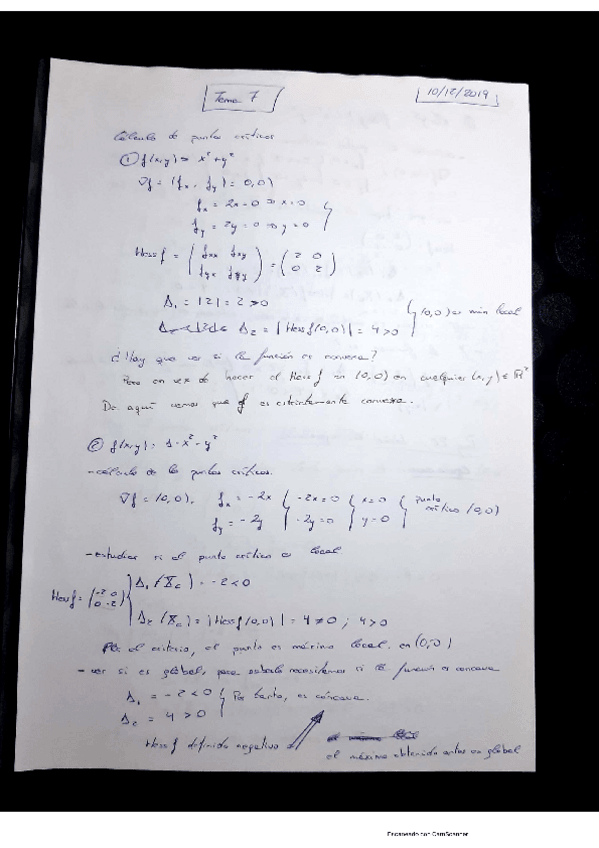 Tema 7
10/12/2019
Cálculo de puntos críticos
① f(x,y) = x² + y²
∇f = (fx, fy) = (0,0)
fx = 2x = 0 ⇒ x = 0
fy = 2y = 0 ⇒ y = 0
Hess f = ( fxx fxy / fyx fyy ) = ( 2 0 / 0 2 )
Δ₁ = |2| = 2 > 0
Δ₂ = |Hess f(0,0)| = 4 > 0 } (0,0) es mín local
¿Hay que ver si la función es convexa?
Pero en vez de hacer el Hess f en (0,0) en cualquier (x,y) ∈ ℝ²
De aquí vemos que f es estrictamente convexa.
② f(x,y) = 1 - x² - y²
- cálculo de los puntos críticos.
∇f = (0,0), fx = -2x { -2x = 0 { x = 0 { punto
fy = -2y { -2y = 0 { y = 0 { crítico (0,0)
- estudiar si el punto crítico es local
Δ₁ (X̄c) = -2 < 0
Hess f = ( -2 0 / 0 -2 )
Δ₂ (X̄c) = |Hess f(0,0)| = 4 ≠ 0 ; 4 > 0
el criterio, el punto es máximo local en (0,0)
- ver si es global, para saberlo necesitamos si la función es concava
Δ₁ = -2 < 0 } Por tanto, es cóncava.
Δ₂ = 4 > 0
Hess f definida negativa
el máximo obtenido antes es global
Escaneado con CamScanner